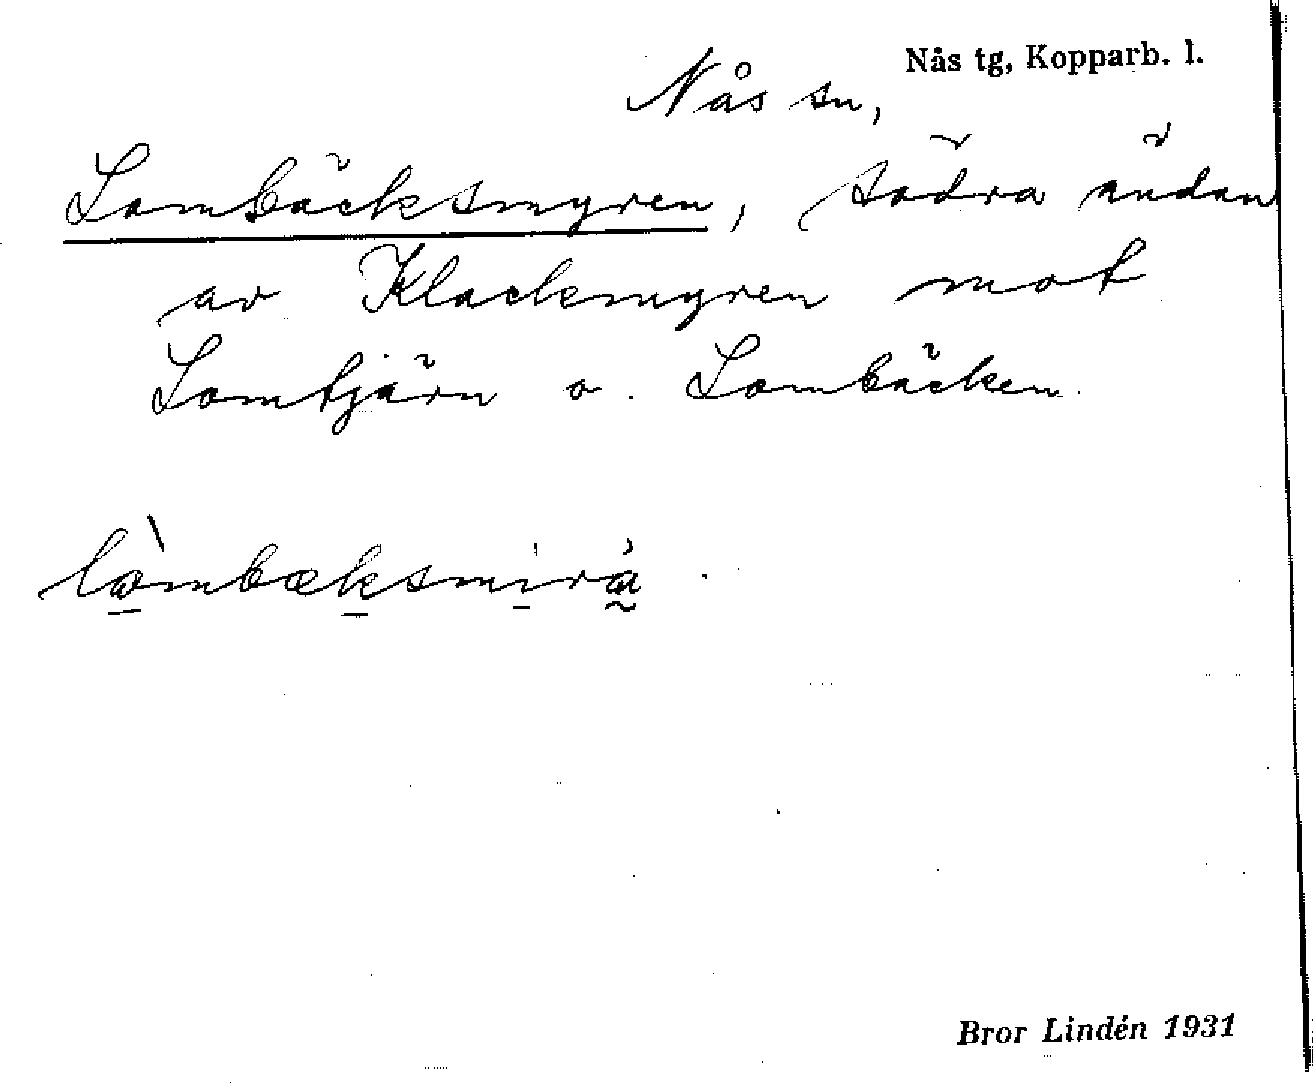 Nås tg, Kopparb. l.
Nås sn,
Lombäcksmyren, södra ändan
av Klackmyren mot
Lomtjärn o. Lombäcken.
lòmbæksmirà.
Bror Lindén 1931